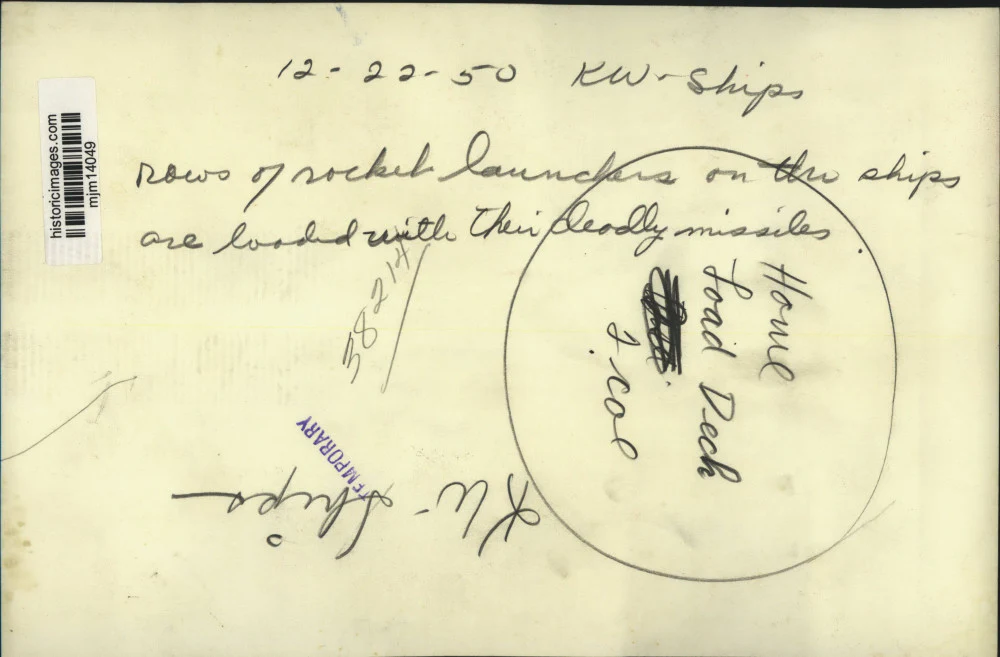 12-22-50 KW-Ships
rows of rocket launchers on the ships
are loaded with their deadly missiles.
historicimages.com
mjm14049
Home
Load Deck
1 col
TEMPORARY
KW- Ships